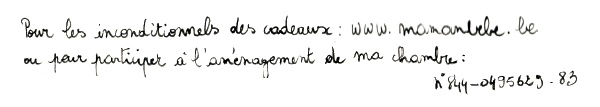 Pour les inconditionnels des cadeaux : www.mamanbebe.be
ou pour participer à l'aménagement de ma chambre :
n°844-0495629-83